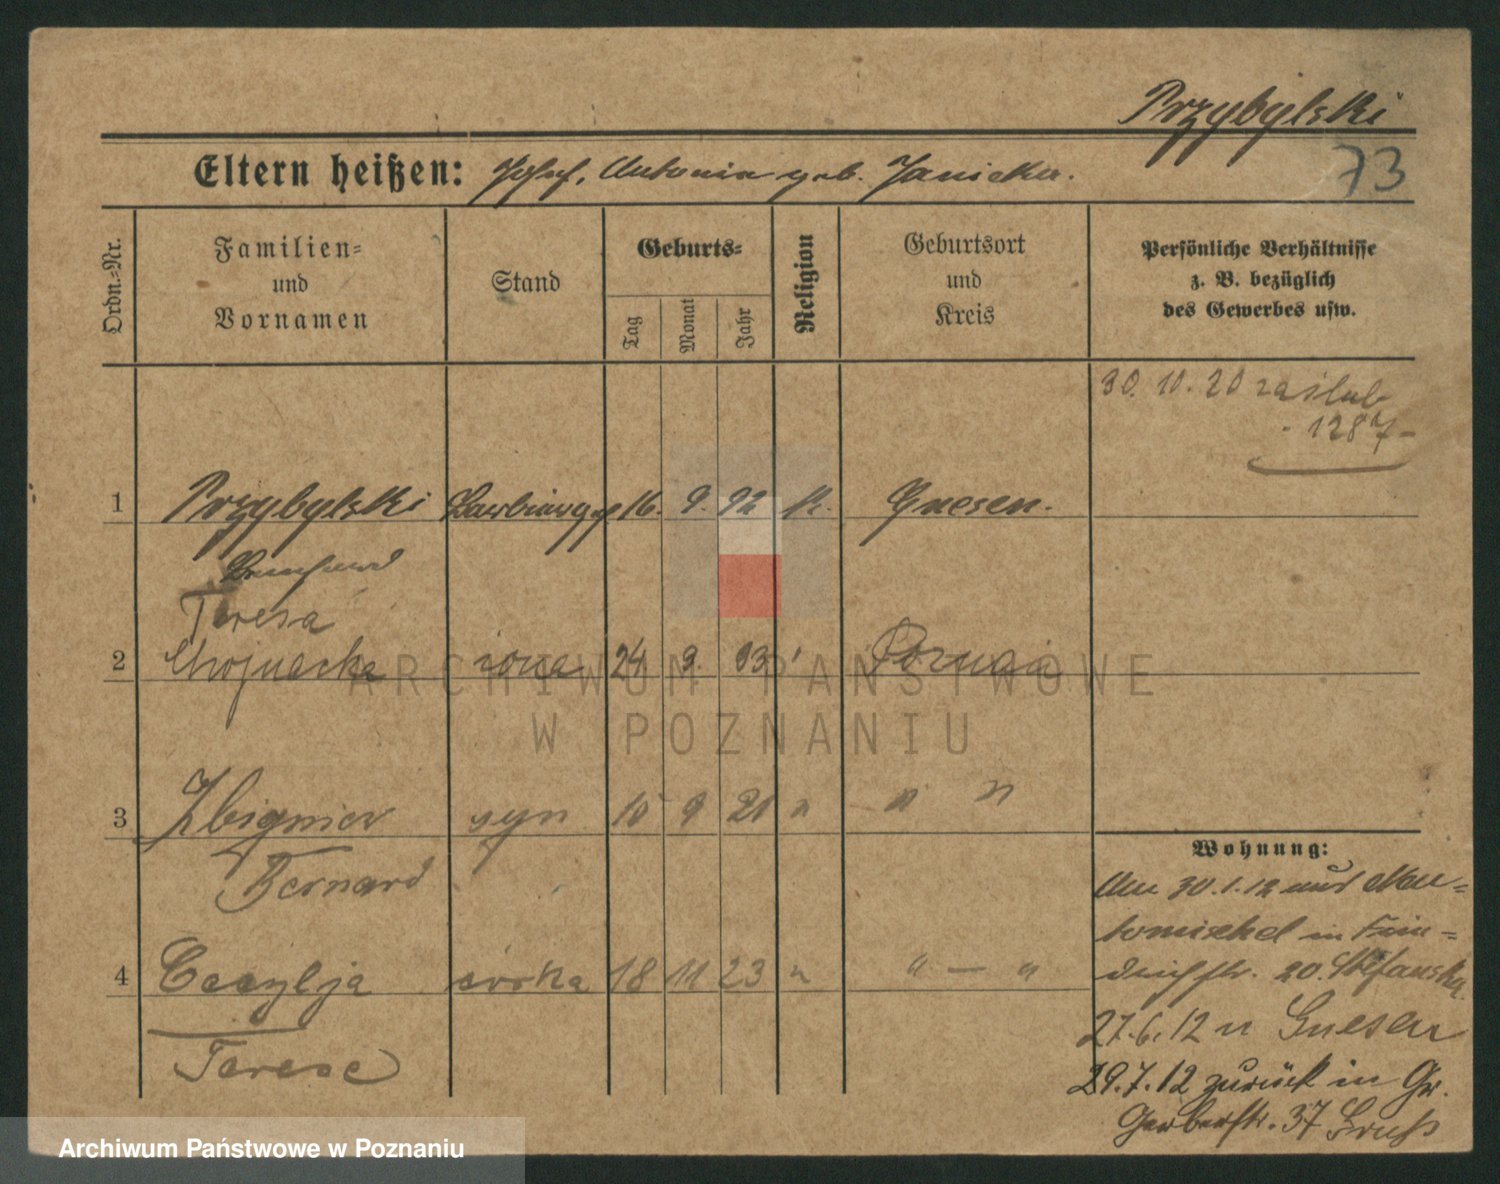 Przybylski
73
Eltern heißen: Josef, Antonia geb. Janicka.
Ordn.=Nr.
Familien=
und
Vornamen
Stand
Geburts=
Tag
Monat
Jahr
Religion
Geburtsort
und
Kreis
Persönliche Verhältnisse
z. B. bezüglich
des Gewerbes usw.
30. 10. 20 zaślub
1287
1 Przybylski Barbiergeh. 16. 9. 92 k. Gnesen.
Bernhard
Teresa
2 Chojnacka żona 24 9. 93 Poznań
3 Zbigniew syn 10 9 21 " " "
Bernard
4 Cecylja córka 18 11 23 " " — "
Terese
Wohnung:
Am 30.1.12 aus Neu=
tomischel in
str. 20. Stefanska
27.6.12 n Gnesen
29.7.12 zurück in Gr.
Gerberstr. 37
ARCHIWUM PAŃSTWOWE
W POZNANIU
Archiwum Państwowe w Poznaniu